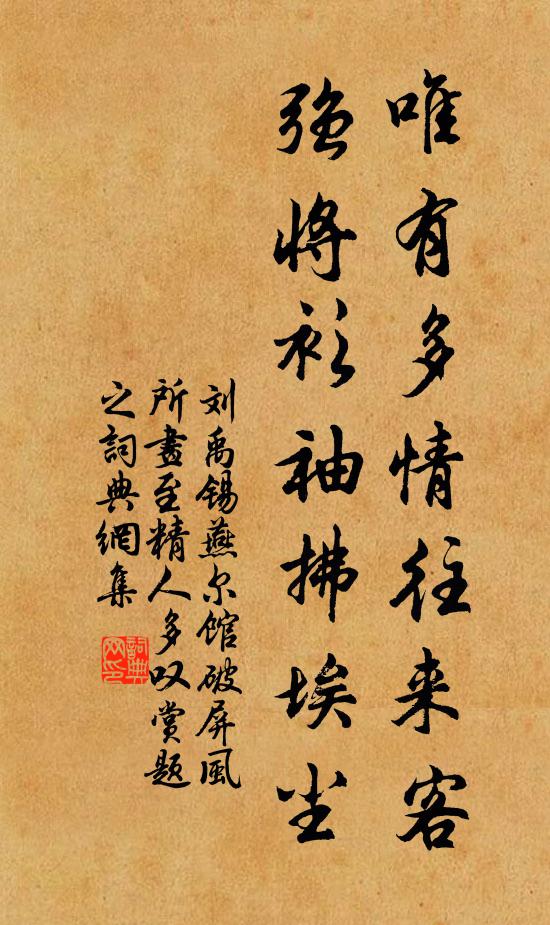 唯有多情往来客
强将衫袖拂埃尘
刘禹锡燕尔馆破屏风
所畫至精人多叹赏题
之詞典網集
詞典
网印